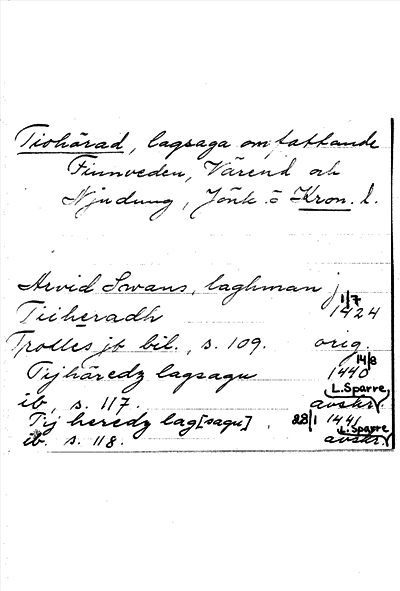 Tiohärad, lagsaga omfattande
Finnveden, Värend och
Njudung, Jönk. o Kron. l.
Arvid Swans, laghman j
Tiiheradh 1/7 1424
Trolles jb bil., s. 109. orig.
Tijhäredz lagsagu 14/8 1440
ib, s. 117. L. Sparre avskr.
Tij heredz lag[sagu] . 28/1 1441
ib. s. 118. L. Sparre avskr.